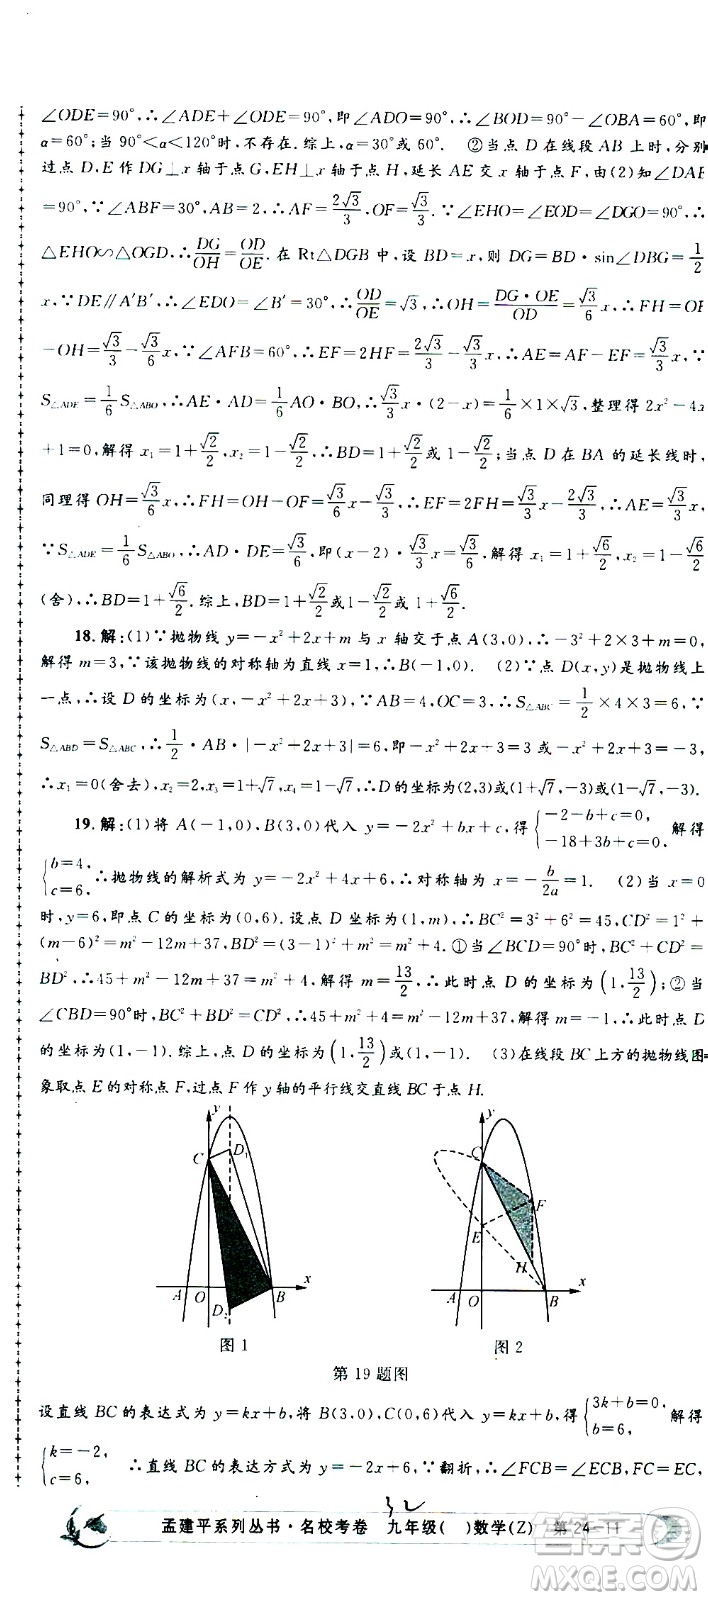 ∠ODE=90°,∴∠ADE+∠ODE=90°,即∠ADO=90°,∴∠BOD=90°-∠OBA=60°,即
α=60°;当 90°<α<120°时,不存在.综上,α=30°或 60°. ②当点 D 在线段 AB 上时,分别
过点 D,E 作 DG⊥x 轴于点 G,EH⊥x 轴于点 H,延长 AE 交 x 轴于点 F,由(2)知∠DAE
=90°,∵∠ABF=30°,AB=2,∴AF=2√3/3,OF=√3/3.∵∠EHO=∠EOD=∠DGO=90°,∴
△EHO∽△OGD,∴DG/OH=OD/OE.在 Rt△DGB 中,设 BD=x,则 DG=BD·sin∠DBG=1/2
x,∵DE∥A'B',∴∠EDO=∠B'=30°,∴OD/OE=√3,∴OH=DG·OE/OD=√3/6x,∴FH=OF
-OH=√3/3-√3/6x,∵∠AFB=60°,∴EF=2HF=2√3/3-√3/3x,∴AE=AF-EF=√3/3x,∵
S△ADE=1/6S△ABO,∴AE·AD=1/6AO·BO,∴√3/3x·(2-x)=1/6×1×√3,整理得 2x²-4x
+1=0,解得 x₁=1+√2/2,x₂=1-√2/2,∴BD=1+√2/2或 1-√2/2;当点 D 在 BA 的延长线时,
同理得 OH=√3/6x,∴FH=OH-OF=√3/6x-√3/3,∴EF=2FH=√3/3x-2√3/3,∴AE=√3/3x,
∵S△ADE=1/6S△ABO,∴AD·DE=√3/6,即(x-2)·√3/3x=√3/6,解得 x₁=1+√6/2,x₂=1-√6/2
(舍),∴BD=1+√6/2.综上,BD=1+√2/2或 1-√2/2或 1+√6/2.
18.解:(1)∵抛物线 y=-x²+2x+m 与 x 轴交于点 A(3,0),∴-3²+2×3+m=0,
解得 m=3,∵该抛物线的对称轴为直线 x=1,∴B(-1,0). (2)∵点 D(x,y)是抛物线上
一点,∴设 D 的坐标为(x,-x²+2x+3),∵AB=4,OC=3,∴S△ABC=1/2×4×3=6,∵
S△ABD=S△ABC,∴1/2·AB·|-x²+2x+3|=6,即-x²+2x+3=3 或-x²+2x+3=-3,
∴x₁=0(舍去),x₂=2,x₃=1+√7,x₄=1-√7,∴D 的坐标为(2,3)或(1+√7,-3)或(1-√7,-3).
19.解:(1)将 A(-1,0),B(3,0)代入 y=-2x²+bx+c,得{-2-b+c=0, -18+3b+c=0, 解得
{b=4, c=6, ∴抛物线的解析式为 y=-2x²+4x+6,∴对称轴为-b/2a=1. (2)当 x=0
时,y=6,即点 C 的坐标为(0,6).设点 D 坐标为(1,m),∴BC²=3²+6²=45,CD²=1²+
(m-6)²=m²-12m+37,BD²=(3-1)²+m²=m²+4.①当∠BCD=90°时,BC²+CD²=
BD²,∴45+m²-12m+37=m²+4,解得 m=13/2,∴此时点 D 的坐标为(1,13/2);②当
∠CBD=90°时,BC²+BD²=CD²,∴45+m²+4=m²-12m+37,解得 m=-1,∴此时点 D
的坐标为(1,-1).综上,点 D 的坐标为(1,13/2)或(1,-1). (3)在线段 BC 上方的抛物线图
象取点 E 的对称点 F,过点 F 作 y 轴的平行线交直线 BC 于点 H.
y
C
D₁
A O B x
D₂
图 1
y
C
F
E
H
A O B x
图 2
第 19 题图
设直线 BC 的表达式为 y=kx+b,将 B(3,0),C(0,6)代入 y=kx+b,得{3k+b=0, b=6, 解得
{k=-2, c=6, ∴直线 BC 的表达方式为 y=-2x+6,∵翻折,∴∠FCB=∠ECB,FC=EC,
32
孟建平系列丛书·名校考卷 九年级( )数学(Z) 第 24-11
答案圈
MXQE.COM